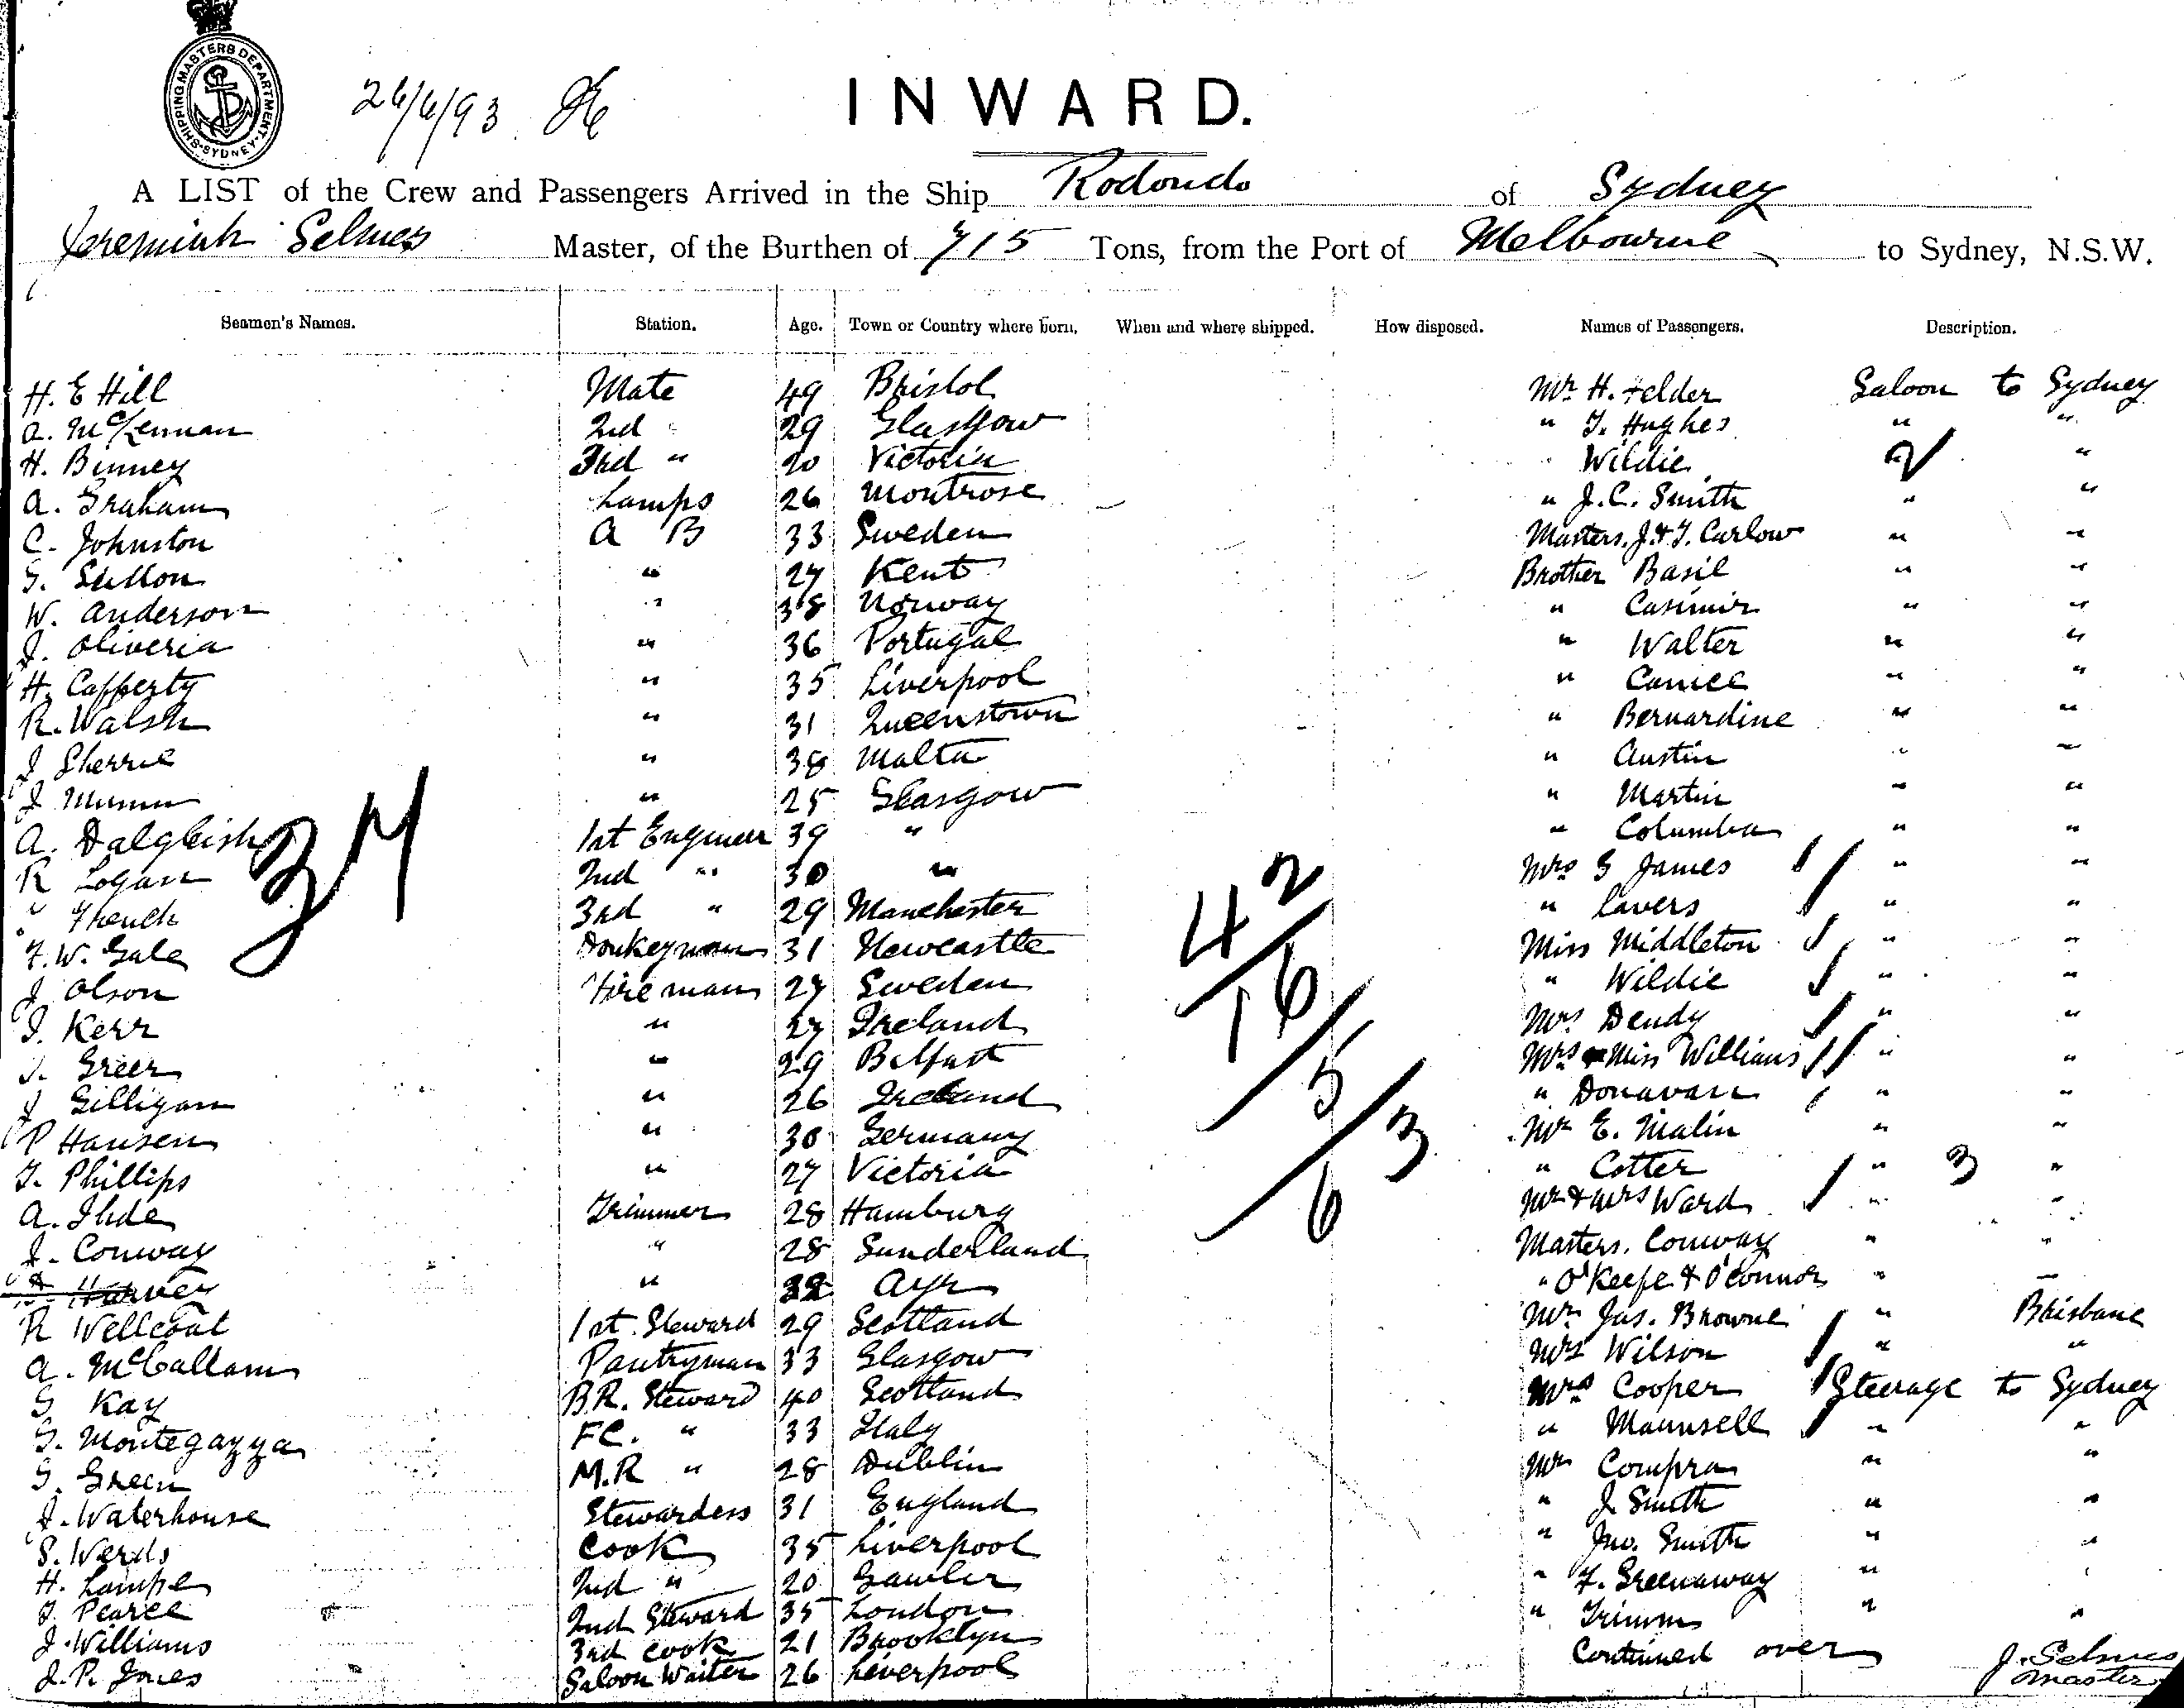 SHIPPING MASTERS DEPARTMENT. SYDNEY
26/6/93
INWARD.
A LIST of the Crew and Passengers Arrived in the Ship Rodondo of Sydney
Jeremiah Selmes Master, of the Burthen of 715 Tons, from the Port of Melbourne to Sydney, N.S.W.
Seamen's Names. Station. Age. Town or Country where born. When and where shipped. How disposed. Names of Passengers. Description.
H. E Hill Mate 49 Bristol Mr H. Felder Saloon to Sydney
A. McLennan 2nd 29 Glasgow " T. Hughes " "
H. Binney 3rd " 20 Victoria Wildie 2 "
A. Graham Lamps 26 Montrose " J.C. Smith " "
C. Johnston A B 33 Sweden Masters. J. & T. Carlow " "
G. Sutton " 27 Kent Brother Basil " "
W. Anderson " 38 Norway " Casimir " "
J. Oliveria " 36 Portugal " Walter " "
H. Cafferty " 35 Liverpool " Canice " "
R. Walsh " 31 Queenstown " Bernardine " "
J Sherrie " 38 Malta " Austin " "
J " 25 Glasgow " Martin " "
A. Dalgleish 1st Engineer 39 " " Columba " "
R Logan 2nd " 30 " Mrs G James " "
" French 3rd " 29 Manchester " Lavers " "
F. W. Gale Donkeyman 31 Newcastle Miss Middleton " "
J Olson Fireman 27 Sweden " Wildie " "
J. Kerr " 27 Ireland Mrs Dendy " "
J. Greer " 29 Belfast Mrs & Miss Williams " "
J Gilligan " 26 Ireland " Donavan " "
P Hansen " 30 Germany Mr E. Malin " "
T. Phillips " 27 Victoria " Cotter " 3 "
A. Ihde Trimmer 28 Hamburg Mr & Mrs Ward " "
J. Conway " 28 Sunderland Masters. Conway " "
Harvey " 32 Ayr " O'Keefe & O'Connor " "
R Wellcoat 1st. Steward 29 Scotland Mr Jas. Browne " Brisbane
A. McCallam Pantryman 33 Glasgow Mrs Wilson " "
G Kay B.R. Steward 40 Scotland Mrs Cooper Steerage to Sydney
G. Montegazza F.C. " 33 Italy " Maunsell " "
G. Green M.R " 28 Dublin Mr Compra " "
J. Waterhouse Stewardess 31 England " J Smith " "
S. Werds Cook 35 Liverpool " Jno. Smith " "
H. Lampe 2nd " 20 Gawler " F. Greenaway "
J. Pearce 2nd Steward 35 London " Trimm " "
J. Williams 3rd Cook 21 Brooklyn Continued over
J. P. Jones Saloon Waiter 26 Liverpool J. Selmes
Master
37
42
16
5
3
6